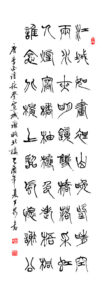 江城如畫裏山晚望晴空
兩水夾明鏡雙橋落彩虹
人煙寒橘柚秋色老梧桐
誰念北樓上臨風懷謝公
唐李白詩秋登宣城謝朓北樓